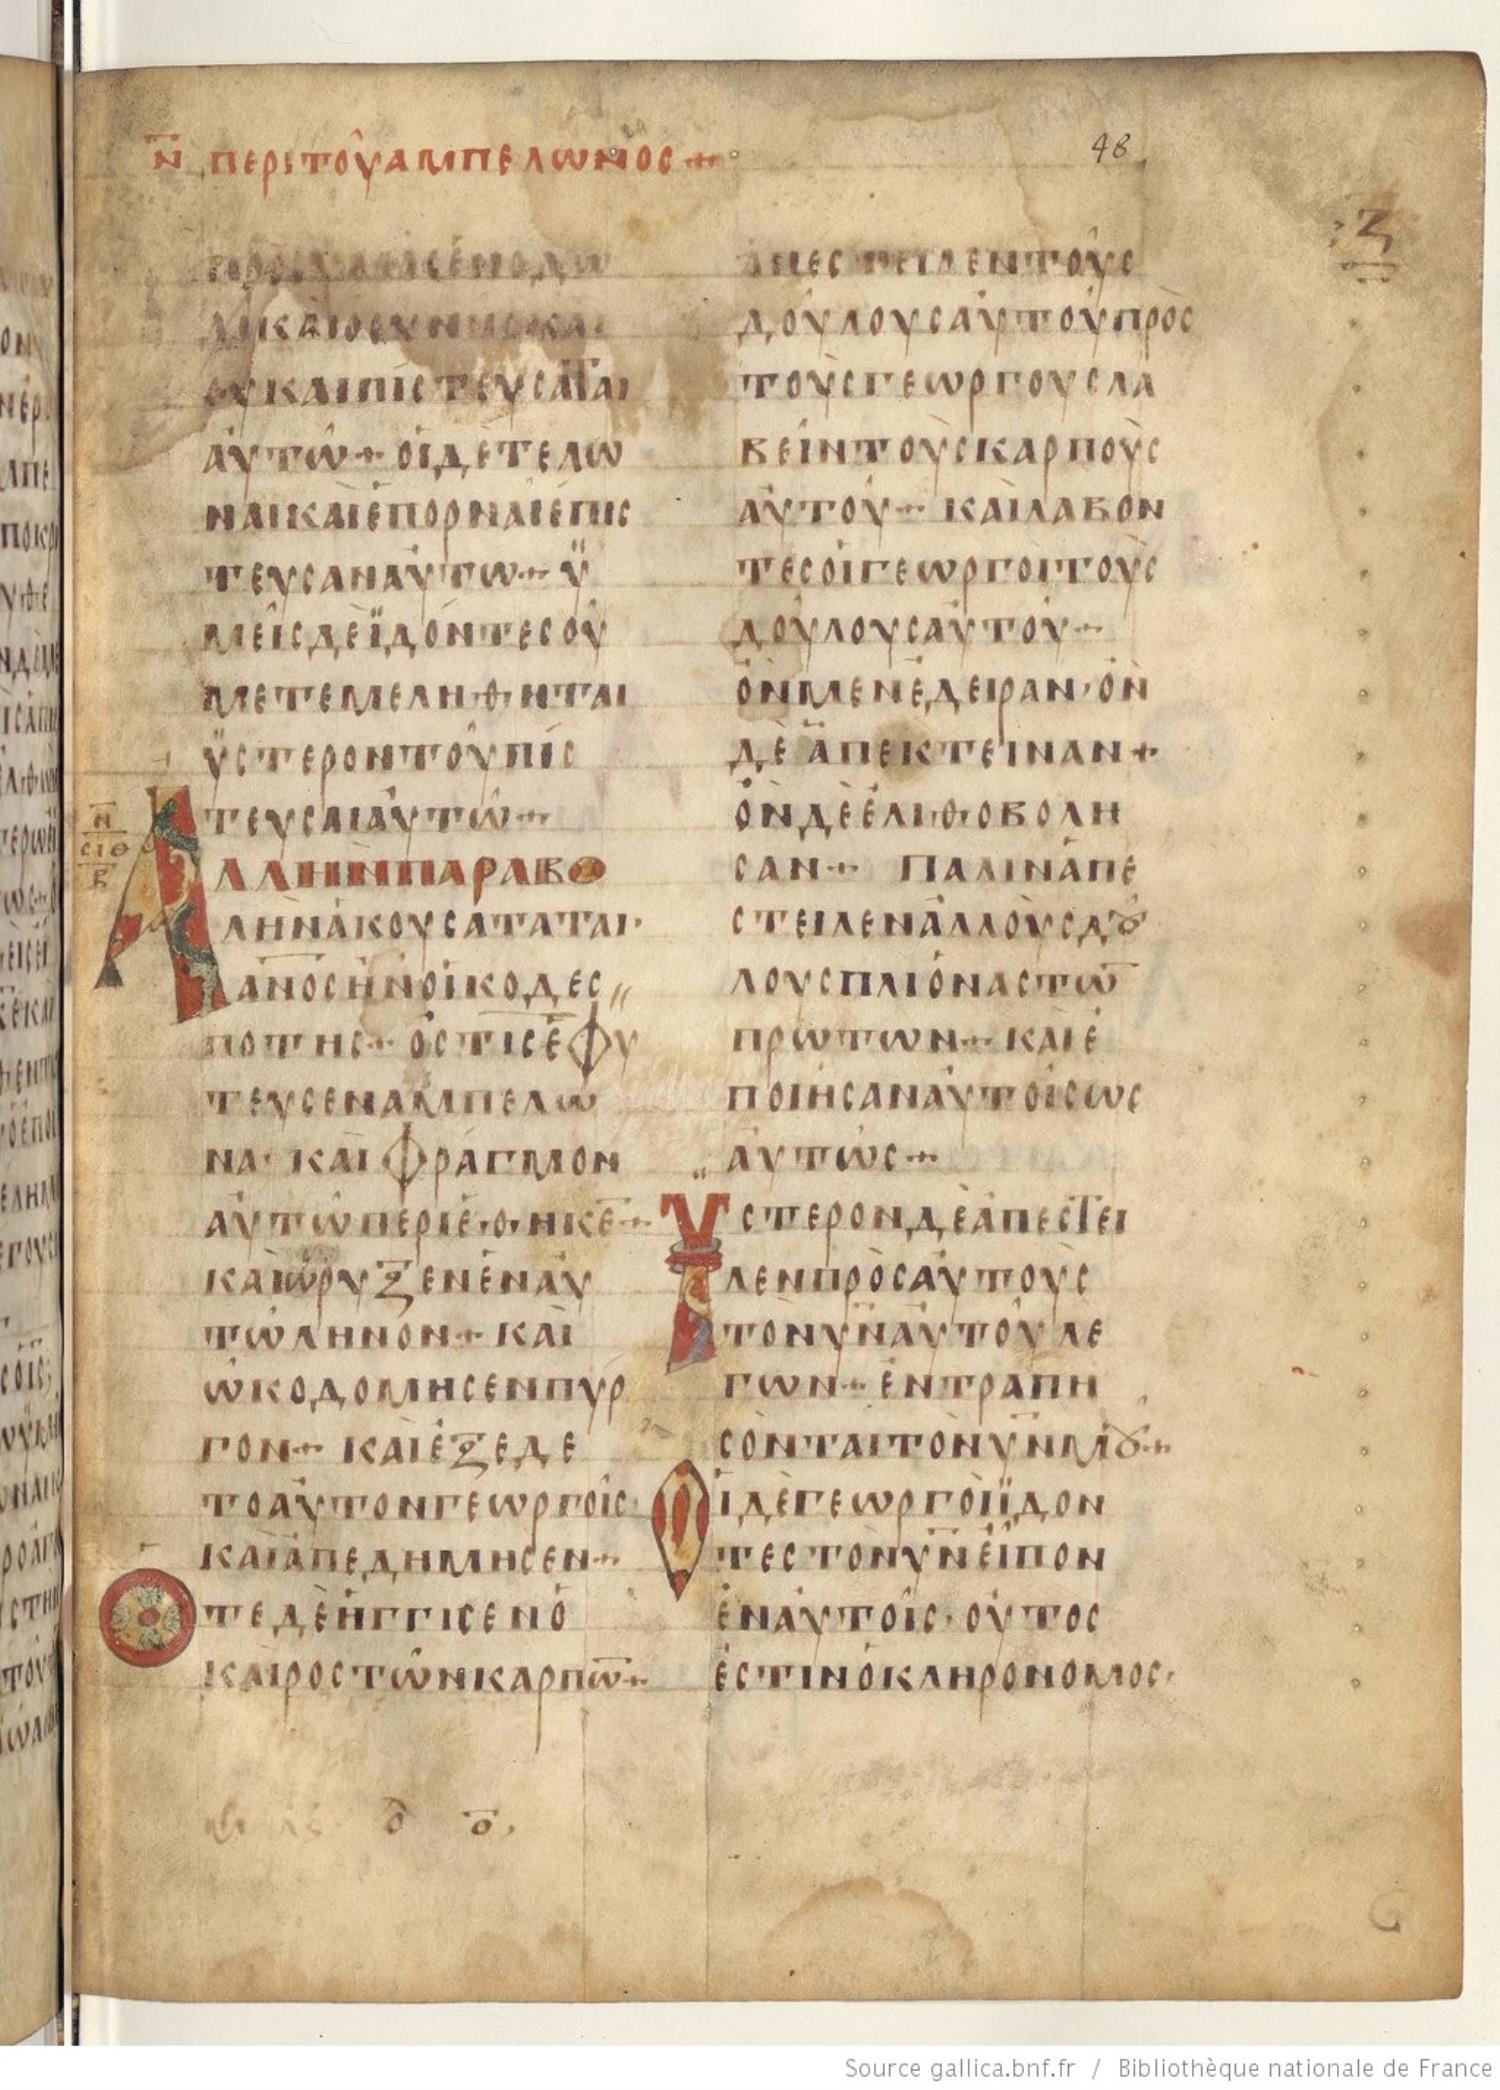 Ν̅ ΠΕΡΙ ΤΟῦ ΑΜΠΕΛΩΝΟΣ +
48
Ζ
ΠΡΟΣ ΥΜΑΣ ἐΝ ΟΔΩ
ΔΙΚΑΙΟΣΥΝΗΣ ΟΚΑΙ
ΟΥΚ ΑΙΠΙΣΤΕΥΣΑΤΑΙ
ΑΥΤΩ + ΟΙ ΔΕ ΤΕΛΩ
ΝΑΙ ΚΑΙ Ε ΠΟΡΝΑΙ ΕΠΙΣ
ΤΕΥΣΑΝ ΑΥΤΩ + Ϋ
ΜΕΙΣ ΔΕ ΪΔΟΝΤΕΣ ΟΥ
ΜΕΤΕΜΕΛΗΘΗΤΑΙ
ΫΣΤΕΡΟΝ ΤΟΥ ΠΙΣ
ΤΕΥΣΑΙ ΑΥΤΩ +
Ν̅
ΣΙΘ
Β
ΑΛΛΗΝ ΠΑΡΑΒΟ
ΛΗΝ ΑΚΟΥΣΑΤΑΤΑΙ·
ΑΝΟΣ ΗΝ ΟΙΚΟΔΕΣ
ΠΟΤΗΣ + ΟΣΤΙΣ ΕΦΥ
ΤΕΥΣΕΝ ΑΜΠΕΛΩ
ΝΑ· ΚΑΙ ΦΡΑΓΜΟΝ
ΑΥΤΩ ΠΕΡΙΕΘΗΚΕ̅ +
ΚΑΙ ΩΡΥΞΕΝ ΕΝ ΑΥ
ΤΩ ΛΗΝΟΝ + ΚΑΙ
ΩΚΟΔΟΜΗΣΕΝ ΠΥΡ
ΓΟΝ + ΚΑΙ ΕΞΕΔΕ
ΤΟ ΑΥΤΟΝ ΓΕΩΡΓΟΙΣ
ΚΑΙ ΑΠΕΔΗΜΗΣΕΝ +
ΟΤΕ ΔΕ ΗΓΓΙΣΕΝ Ο
ΚΑΙΡΟΣ ΤΩΝ ΚΑΡΠΩ̅ +
ΑΠΕΣΤΕΙΛΕΝ ΤΟΥΣ
ΔΟΥΛΟΥΣ ΑΥΤΟΥ ΠΡΟΣ
ΤΟΥΣ ΓΕΩΡΓΟΥΣ ΛΑ
ΒΕΙΝ ΤΟΥΣ ΚΑΡΠΟΥΣ
ΑΥΤΟΥ + ΚΑΙ ΛΑΒΟΝ
ΤΕΣ ΟΙ ΓΕΩΡΓΟΙ ΤΟΥΣ
ΔΟΥΛΟΥΣ ΑΥΤΟΥ +
ΟΝ ΜΕΝ ΕΔΕΙΡΑΝ· ΟΝ
ΔΕ ΑΠΕΚΤΕΙΝΑΝ +
ΟΝ ΔΕ ΕΛΙΘΟΒΟΛΗ
ΣΑΝ + ΠΑΛΙΝ ΑΠΕ
ΣΤΕΙΛΕΝ ΑΛΛΟΥΣ ΔȢ
ΛΟΥΣ ΠΛΙΟΝΑΣ ΤΩ̅
ΠΡΩΤΩΝ + ΚΑΙ Ε
ΠΟΙΗΣΑΝ ΑΥΤΟΙΣ ΩΣ
ΑΥΤΩΣ +
ΥΣΤΕΡΟΝ ΔΕ ΑΠΕΣΤΕΙ
ΛΕΝ ΠΡΟΣ ΑΥΤΟΥΣ
ΤΟΝ Υ̅Ν̅ ΑΥΤΟΥ ΛΕ
ΓΩΝ + ΕΝΤΡΑΠΗ
ΣΟΝΤΑΙ ΤΟΝ Υ̅Ν̅ ΜȢ +
ΟΙ ΔΕ ΓΕΩΡΓΟΙ ΪΔΟΝ
ΤΕΣ ΤΟΝ Υ̅Ν̅ ΕΙΠΟΝ
ΕΝ ΑΥΤΟΙΣ· ΟΥΤΟΣ
ΕΣΤΙΝ Ο ΚΛΗΡΟΝΟΜΟΣ·
Source gallica.bnf.fr / Bibliothèque nationale de France